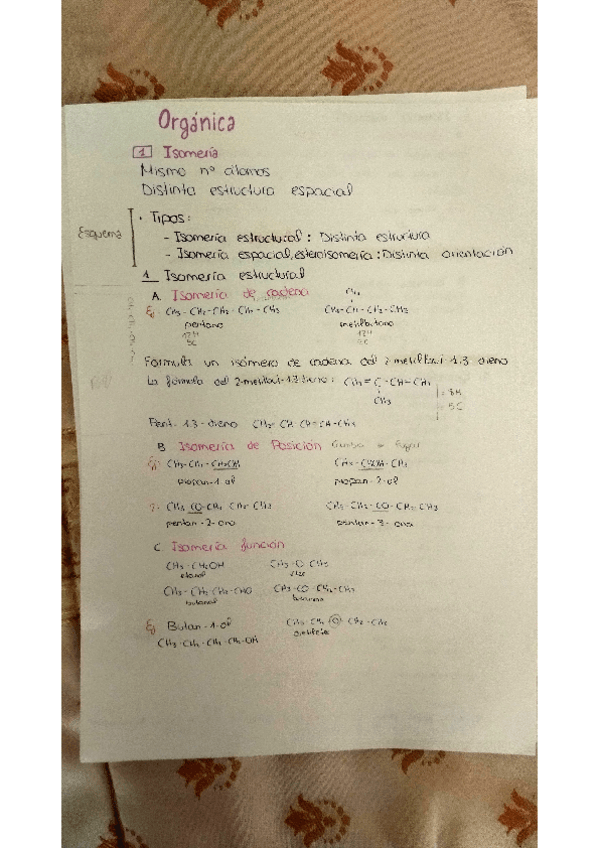 Orgánica
1 Isomería
Mismo nº átomos
Distinta estructura espacial
Esquema
· Tipos:
- Isomería estructural: Distinta estructura
- Isomería espacial, esteroisomería: Distinta orientación
1 Isomería estructural
A. Isomería de cadena
Ej CH3 - CH2 - CH2 - CH2 - CH3
CH3 - CH - CH2 - CH3
pentano
metilbutano
Formula un isómero de cadena del 2-metilbut-1,3-dieno
La fórmula del 2-metilbut-1,3-dieno: CH2 = C - CH = CH2
CH3
8H
5C
Pent-1,3-dieno
B. Isomería de Posición
CH3 - CH2 - CH2OH
CH3 - CHOH - CH3
propan-1-ol
propan-2-ol
CH3 - CO - CH2 - CH2 - CH3
CH3 - CH2 - CO - CH2 - CH3
pentan-2-ona
pentan-3-ona
C. Isomería función
CH3 - CH2OH
CH3 - O - CH3
etanol
CH3 - CH2 - CH2 - CHO
CH3 - CO - CH2 - CH3
butanal
butanona
Ej Butan-1-ol
CH3 - CH2 - O - CH2 - CH3
CH3 - CH2 - CH2 - CH2 - OH